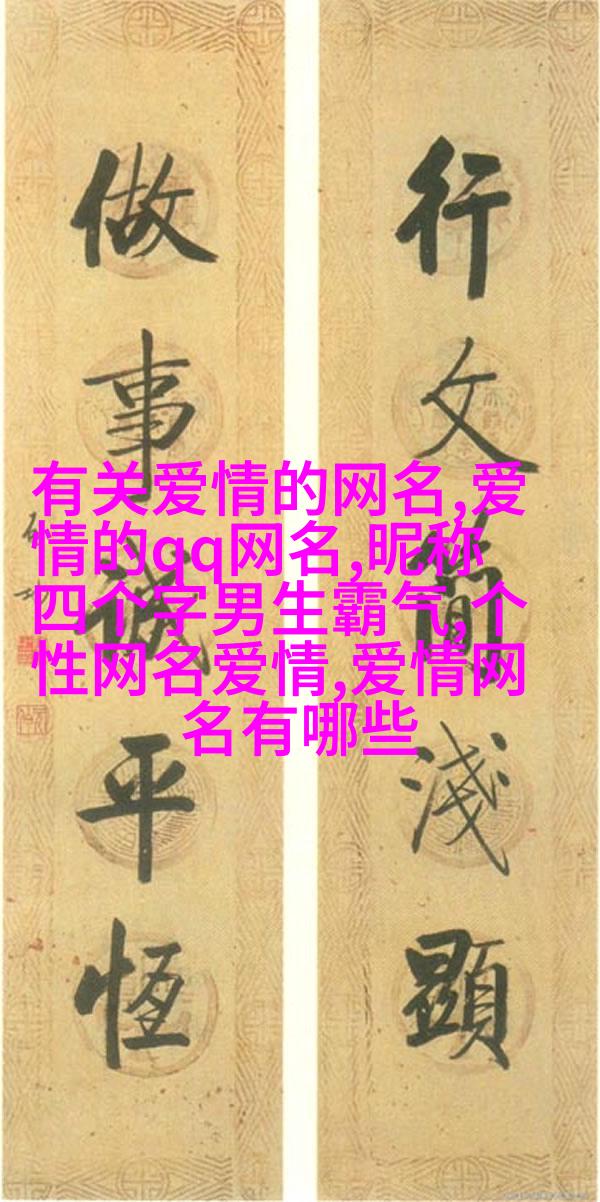 行文簡淺顯
做事誠平恆
有关爱情的网名,爱
情的qq网名,昵称
四个字男生霸气,个
性网名爱情,爱情网
名有哪些